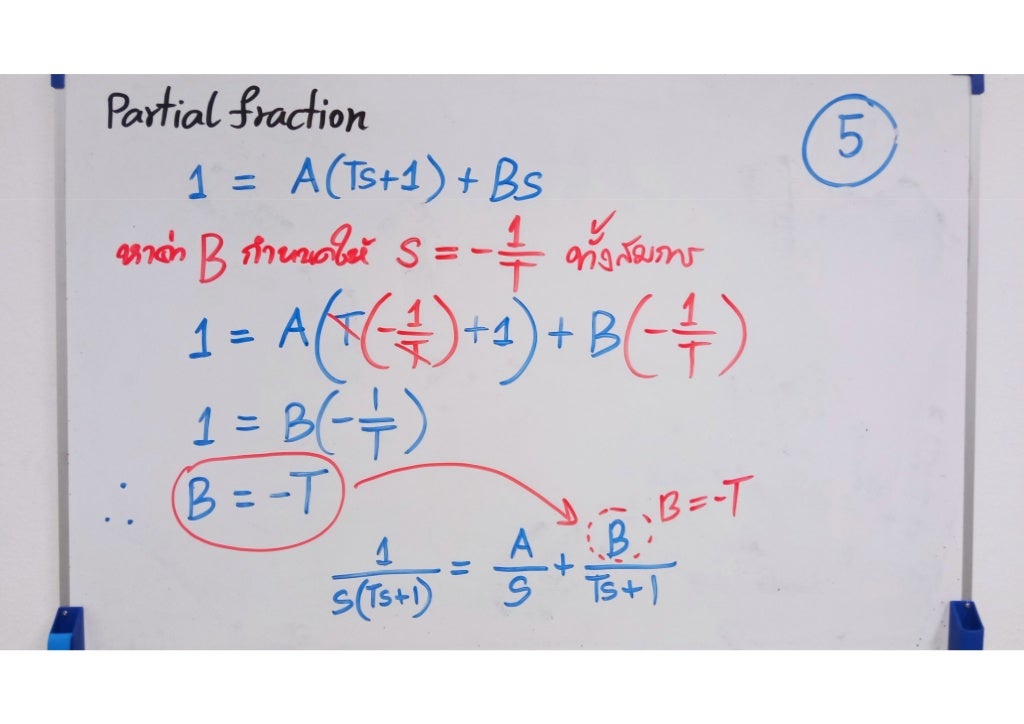 Partial fraction
5
1 = A(Ts+1) + Bs
หาค่า B กำหนดให้ s = -1/T ทั้งสมการ
1 = A(T(-1/T)+1) + B(-1/T)
1 = B(-1/T)
∴ B = -T
B = -T
1/(s(Ts+1)) = A/s + B/(Ts+1)